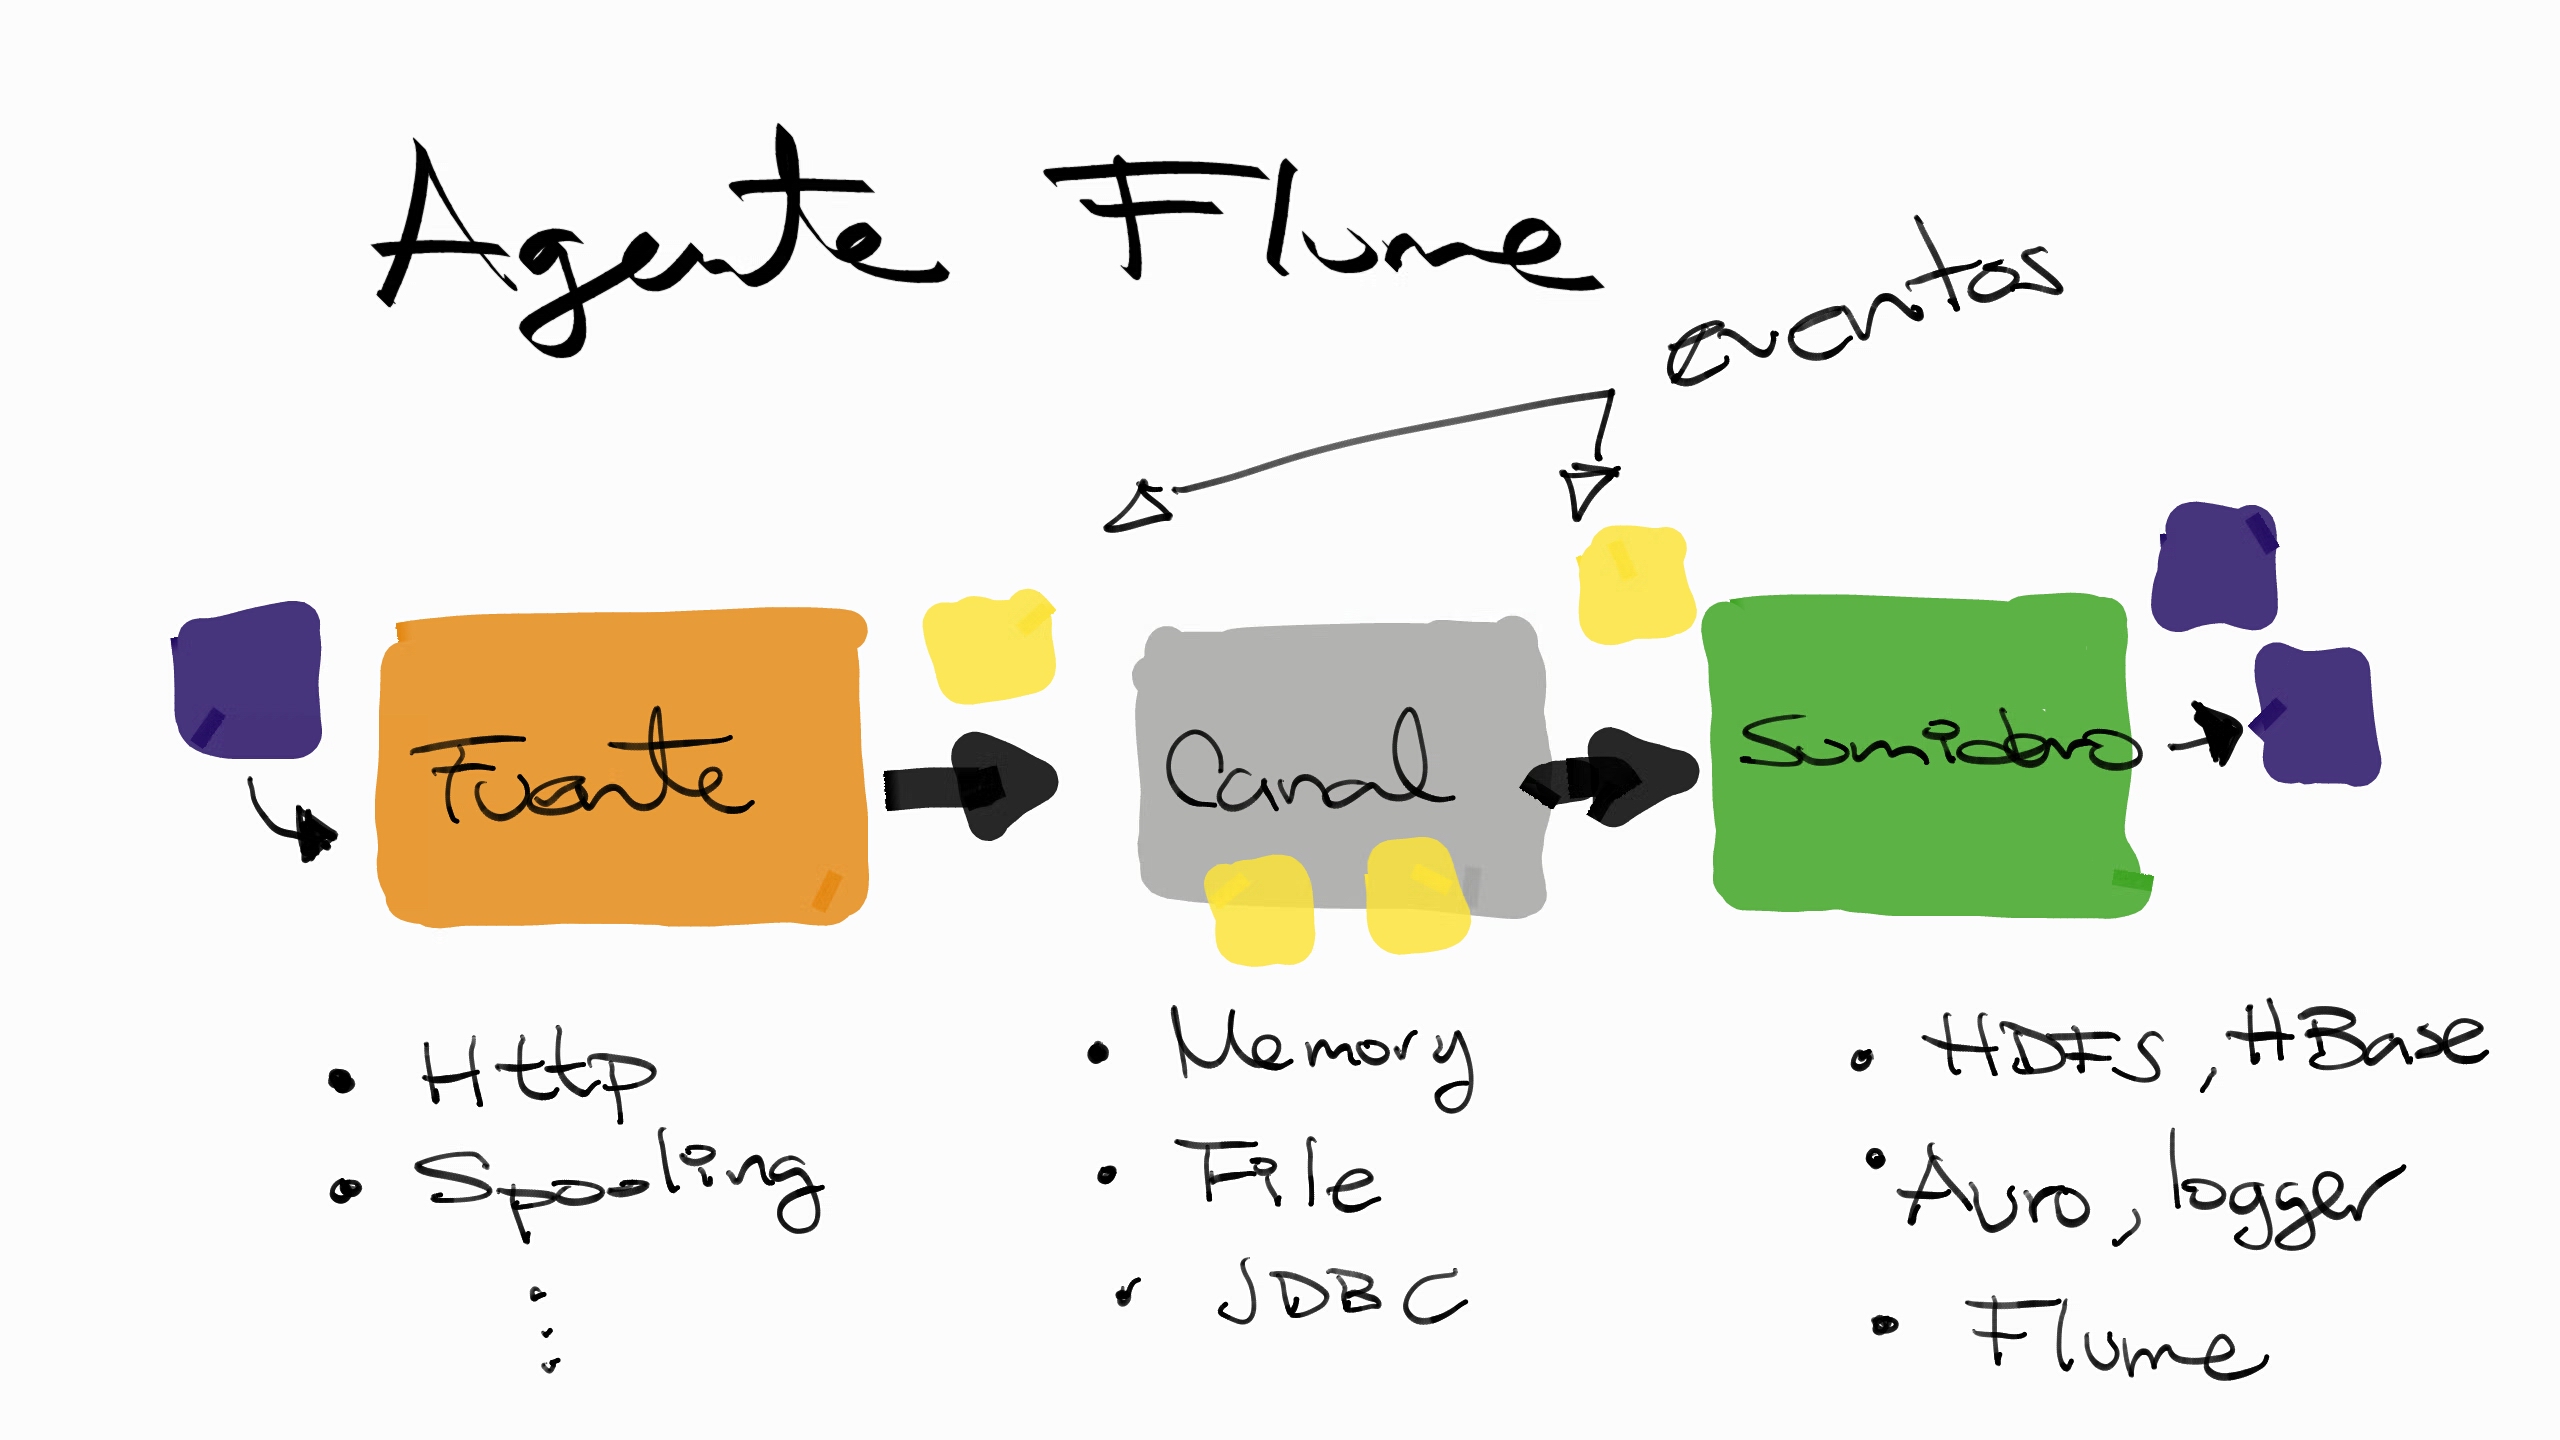 Agente Flume
eventos
Fuente
Canal
Sumidero
• Http
• Spooling
• Memory
• File
• JDBC
• HDFS, HBase
• Avro, logger
• Flume